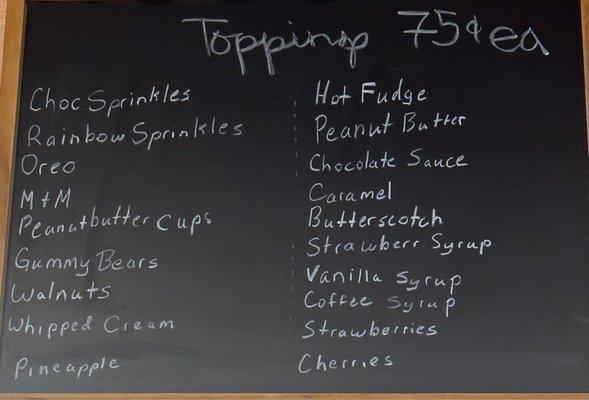 Topping 75¢ ea
Choc Sprinkles
Rainbow Sprinkles
Oreo
M+M
Peanutbutter Cups
Gummy Bears
Walnuts
Whipped Cream
Pineapple
Hot Fudge
Peanut Butter
Chocolate Sauce
Caramel
Butterscotch
Strawberr Syrup
Vanilla Syrup
Coffee Syrup
Strawberries
Cherries